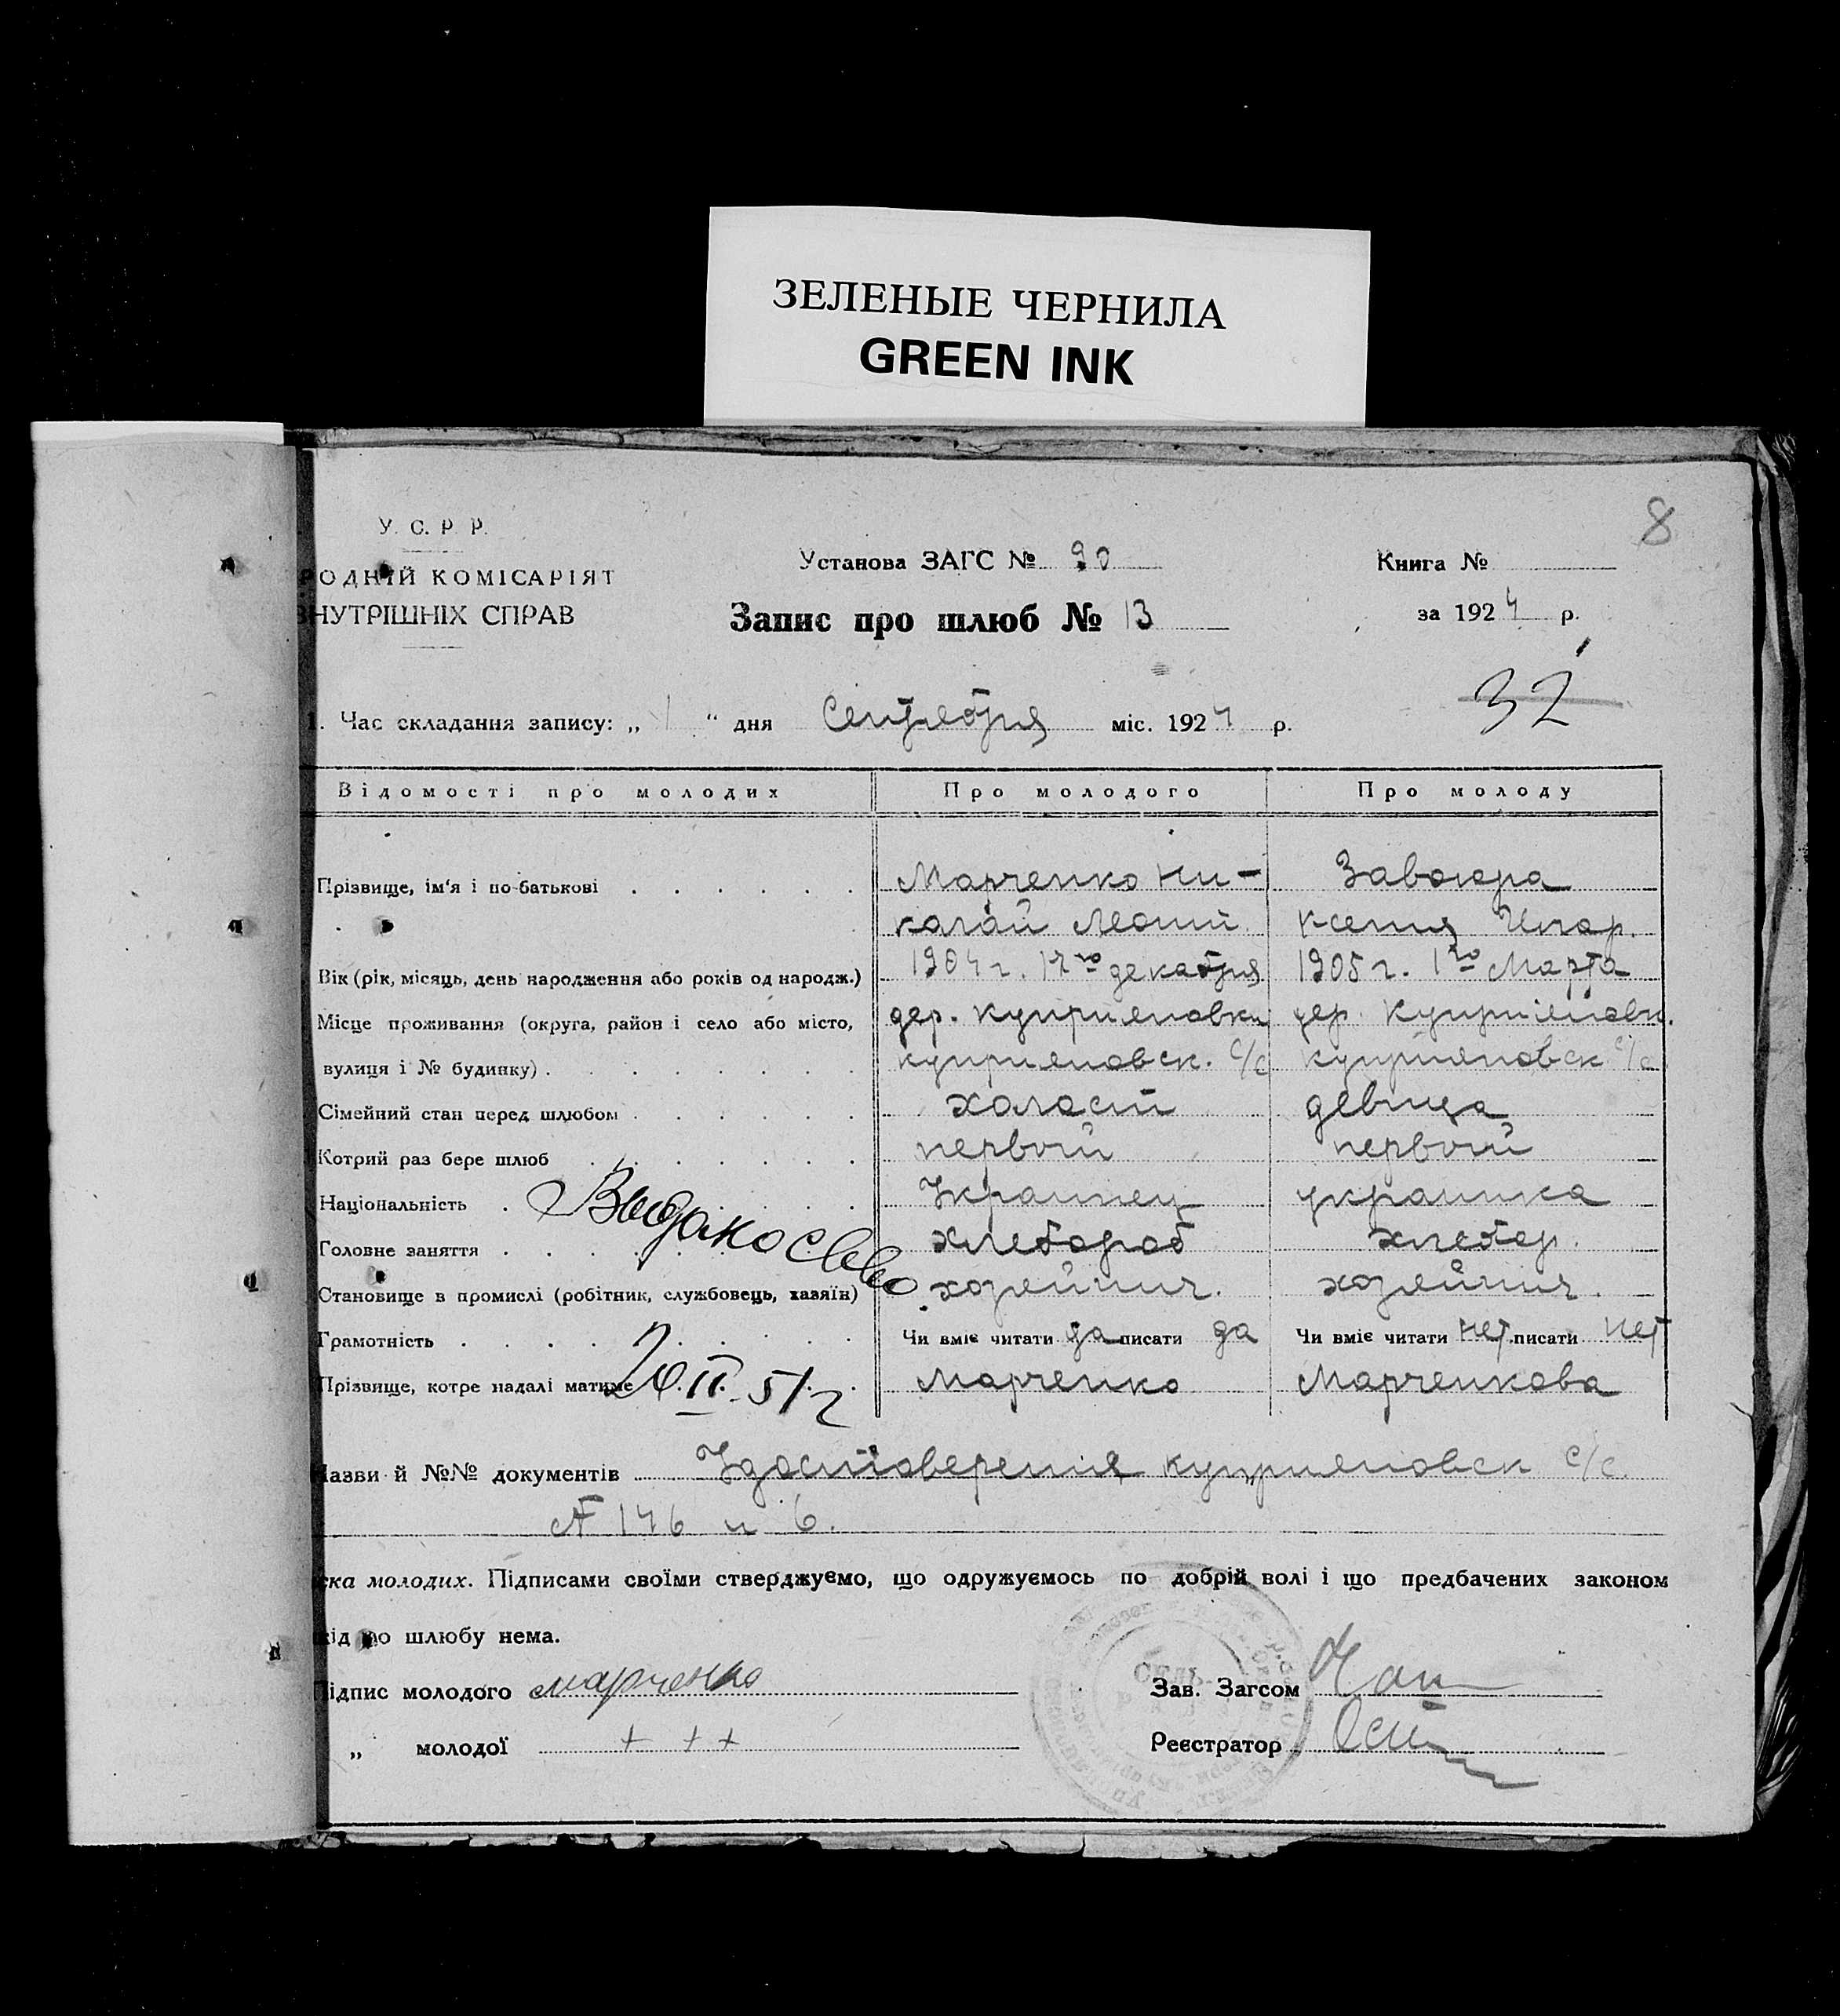 ЗЕЛЕНЫЕ ЧЕРНИЛА
GREEN INK
8
У. С. Р. Р.
РОДНІЙ КОМІСАРІЯТ
ВНУТРІШНІХ СПРАВ
Установа ЗАГС № 90
Книга №
Запис про шлюб № 13
за 1924 р.
32
1. Час складання запису: „ 1 “ дня Сентября міс. 1924 р.
Відомості про молодих Про молодого Про молоду
Прізвище, ім'я і по-батькові Марченко Ни- Завоюра
колай Ксения
Вік (рік, місяць, день народження або років од народж.) 1904 г. 17го декабря 1905 г. 1го Марта
Місце проживання (округа, район і село або місто, дер. Куприяновки дер. Куприяновк.
вулиця і № будинку) куприяновск. с/с куприяновск с/с
Сімейний стан перед шлюбом холост девица
Котрий раз бере шлюб первой первой
Національність Украинец украинка
Головне заняття хлебороб хлебор.
Становище в промислі (робітник, службовець, хазяїн) хозяйнич. хозяйнич.
Грамотність Чи вміє читати да писати да Чи вміє читати нет писати нет
Прізвище, котре надалі матиме Марченко Марченкова
Выдано св-во
20.II.51 г
Назви й №№ документів Удостоверения куприяновск с/с.
№ 146 и 6.
ска молодих. Підписами своїми стверджуємо, що одружуємось по добрій волі і що предбачених законом
від до шлюбу нема.
Підпис молодого марченко
Зав. Загсом
„ молодої + + +
Реєстратор